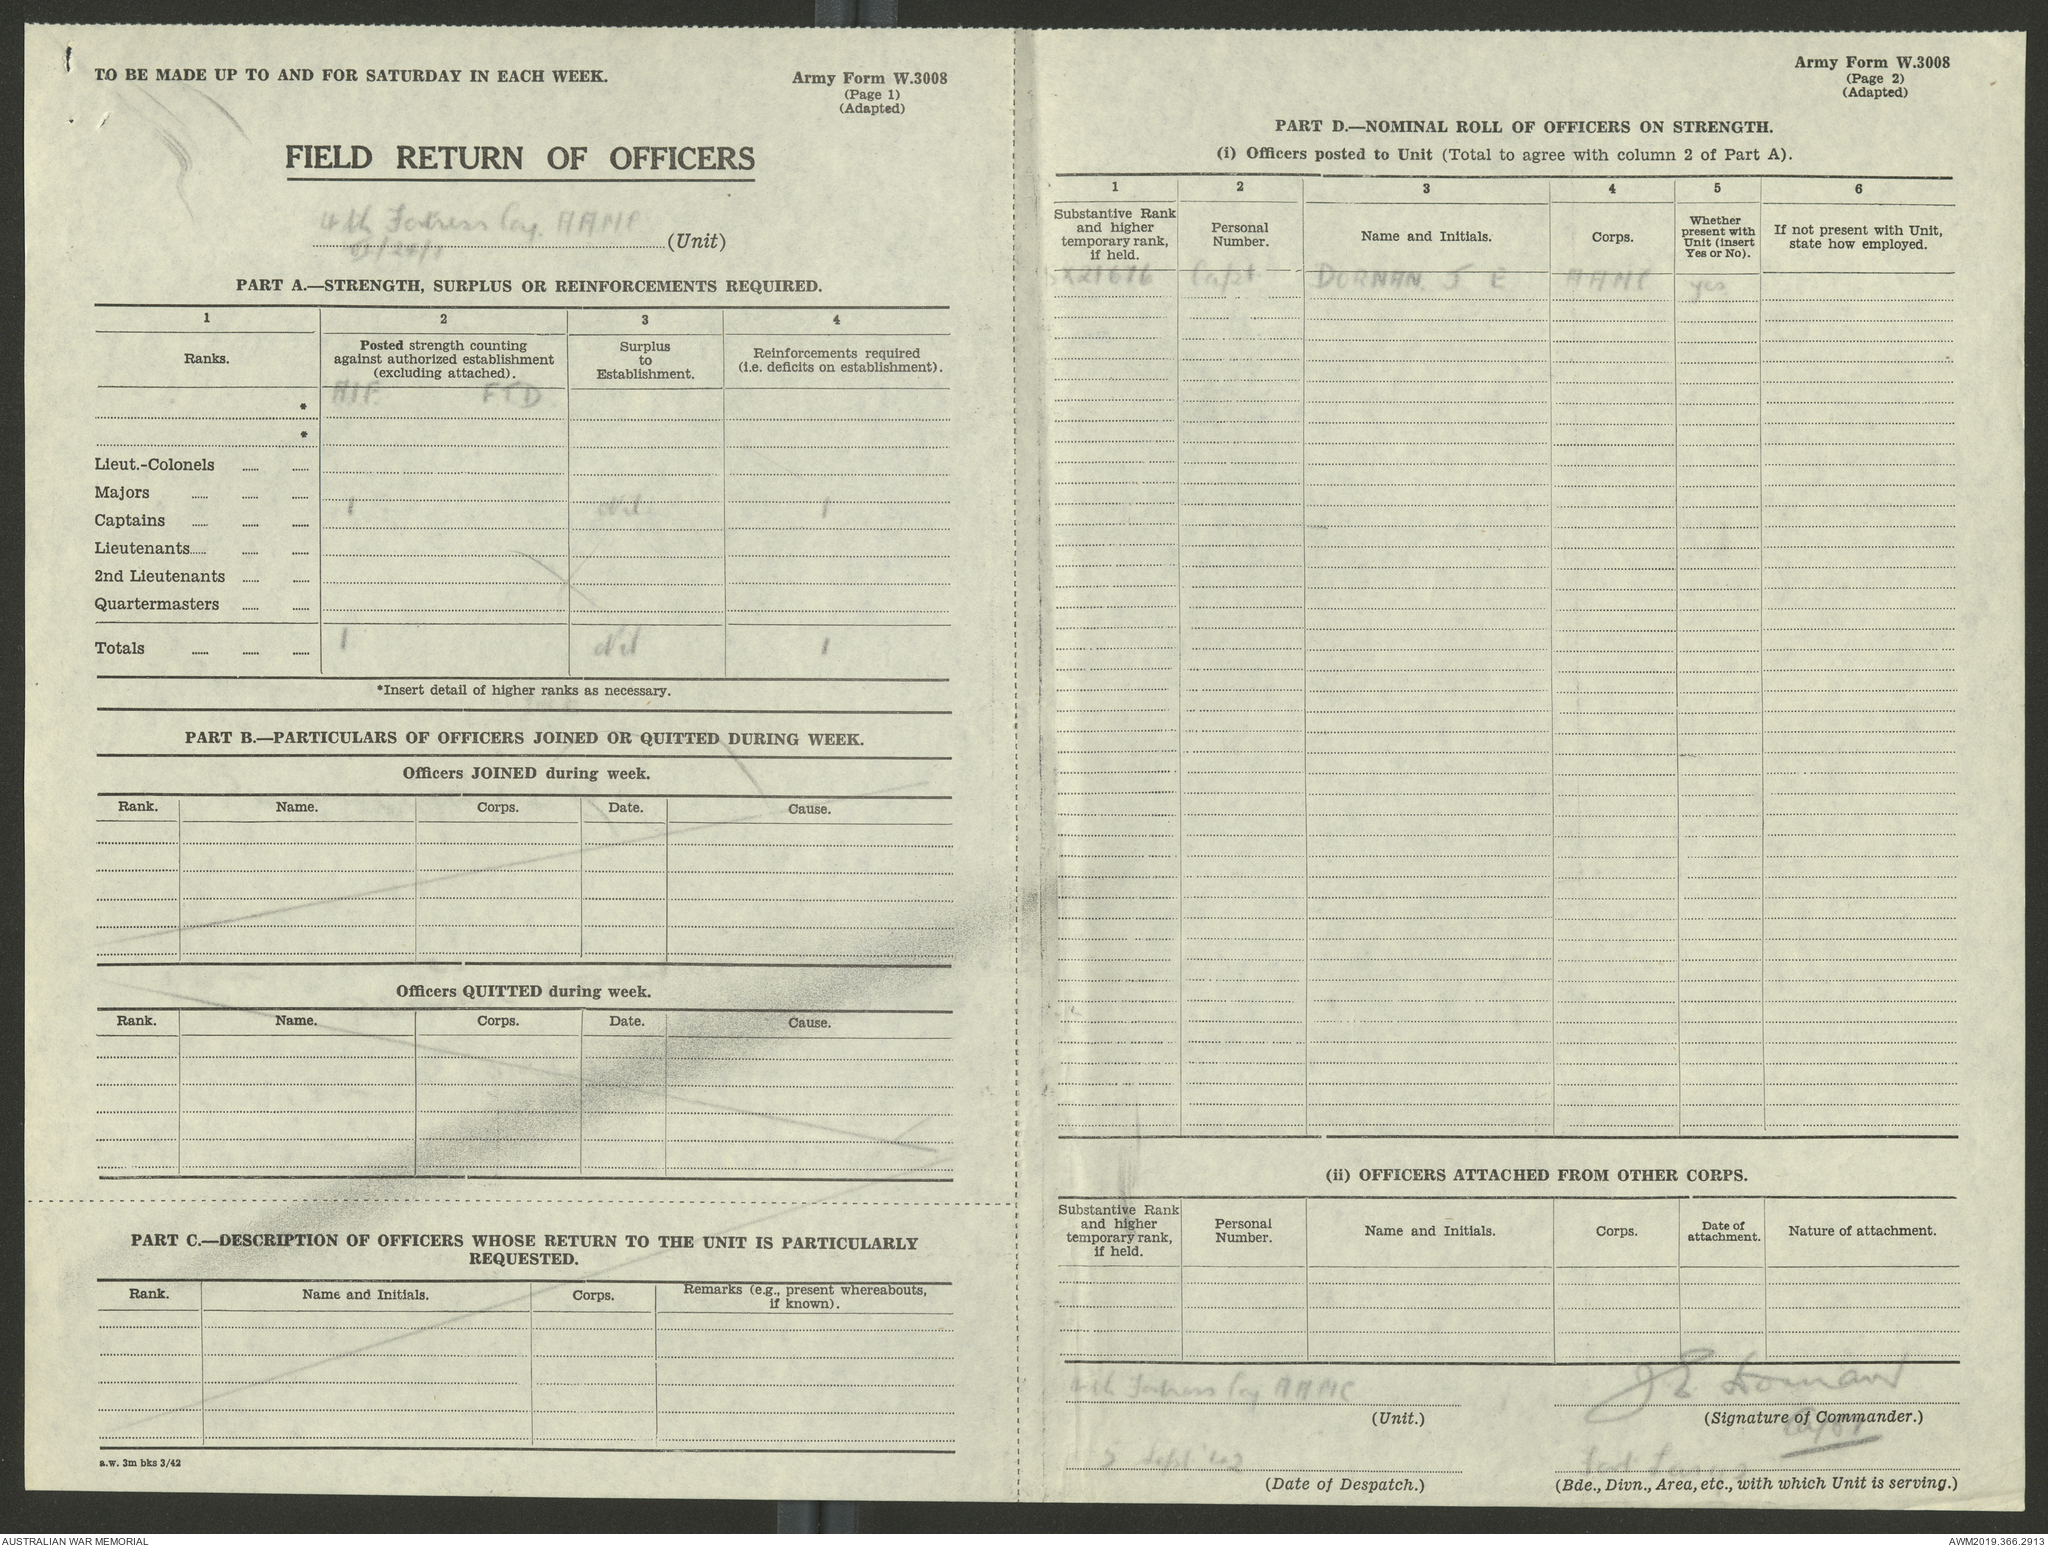 TO BE MADE UP TO AND FOR SATURDAY IN EACH WEEK.
Army Form W.3008
(Page 1)
(Adapted)
FIELD RETURN OF OFFICERS
4th Fortress Coy. AAMC
(Unit)
PART A.—STRENGTH, SURPLUS OR REINFORCEMENTS REQUIRED.
1 2 3 4
Ranks.
Posted strength counting
against authorized establishment
(excluding attached).
Surplus
to
Establishment.
Reinforcements required
(i.e. deficits on establishment).
AIF FTD
*
*
Lieut.-Colonels ...... ......
Majors ...... ...... ......
Captains ...... ...... ...... 1 Nil 1
Lieutenants...... ...... ......
2nd Lieutenants ...... ......
Quartermasters ...... ......
Totals ...... ...... ...... 1 Nil 1
*Insert detail of higher ranks as necessary.
PART B.—PARTICULARS OF OFFICERS JOINED OR QUITTED DURING WEEK.
Officers JOINED during week.
Rank. Name. Corps. Date. Cause.
Officers QUITTED during week.
Rank. Name. Corps. Date. Cause.
PART C.—DESCRIPTION OF OFFICERS WHOSE RETURN TO THE UNIT IS PARTICULARLY
REQUESTED.
Rank. Name and Initials. Corps.
Remarks (e.g., present whereabouts,
if known).
a.w. 3m bks 3/42
Army Form W.3008
(Page 2)
(Adapted)
PART D.—NOMINAL ROLL OF OFFICERS ON STRENGTH.
(i) Officers posted to Unit (Total to agree with column 2 of Part A).
1 2 3 4 5 6
Substantive Rank
and higher
temporary rank,
if held.
Personal
Number.
Name and Initials.
Corps.
Whether
present with
Unit (insert
Yes or No).
If not present with Unit,
state how employed.
Capt DORNAN J E AAMC yes
(ii) OFFICERS ATTACHED FROM OTHER CORPS.
Substantive Rank
and higher
temporary rank,
if held.
Personal
Number.
Name and Initials.
Corps.
Date of
attachment.
Nature of attachment.
4th Fortress Coy AAMC
(Unit.)
J E Dornan
(Signature of Commander.)
Capt
5 Sept '42
(Date of Despatch.)
(Bde., Divn., Area, etc., with which Unit is serving.)
AUSTRALIAN WAR MEMORIAL
AWM2019.366.2913